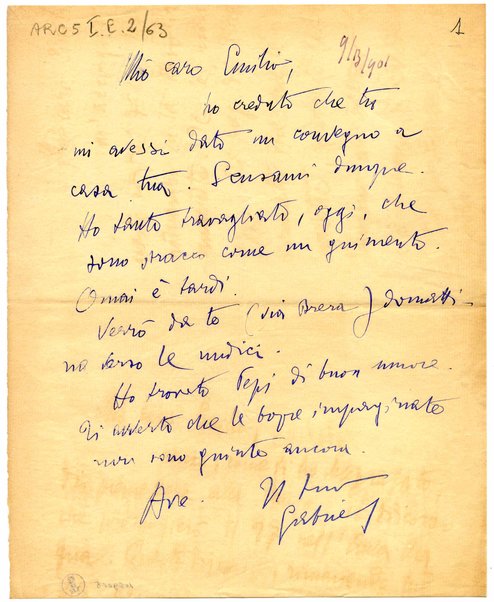 ARC 5 I.E.2/63
1
Mio caro Emilio,
ho creduto che tu
mi avessi dato un convegno a
casa tua. Scusami dunque.
Ho tanto travagliato, oggi, che
sono stracco come un giumento.
Omai è tardi.
Verrò da te (via Brera) domatti-
na verso le undici.
Ho trovato Pepi di buon umore.
Ti avverto che le bozze impaginate
non sono giunte ancora.
Ave. Il tuo
Gabriel